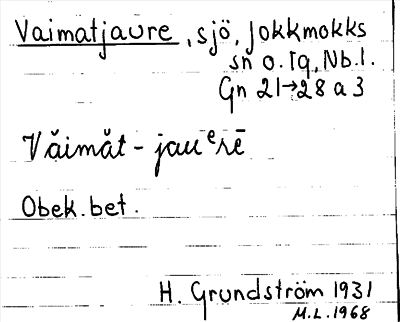 Vaimatjaure, sjö, Jokkmokks
sn o. tq, Nb.l.
Gn 21→28 a 3
Văimăt - jauᵉrē
Obek. bet.
H. Grundström 1931
M.L. 1968